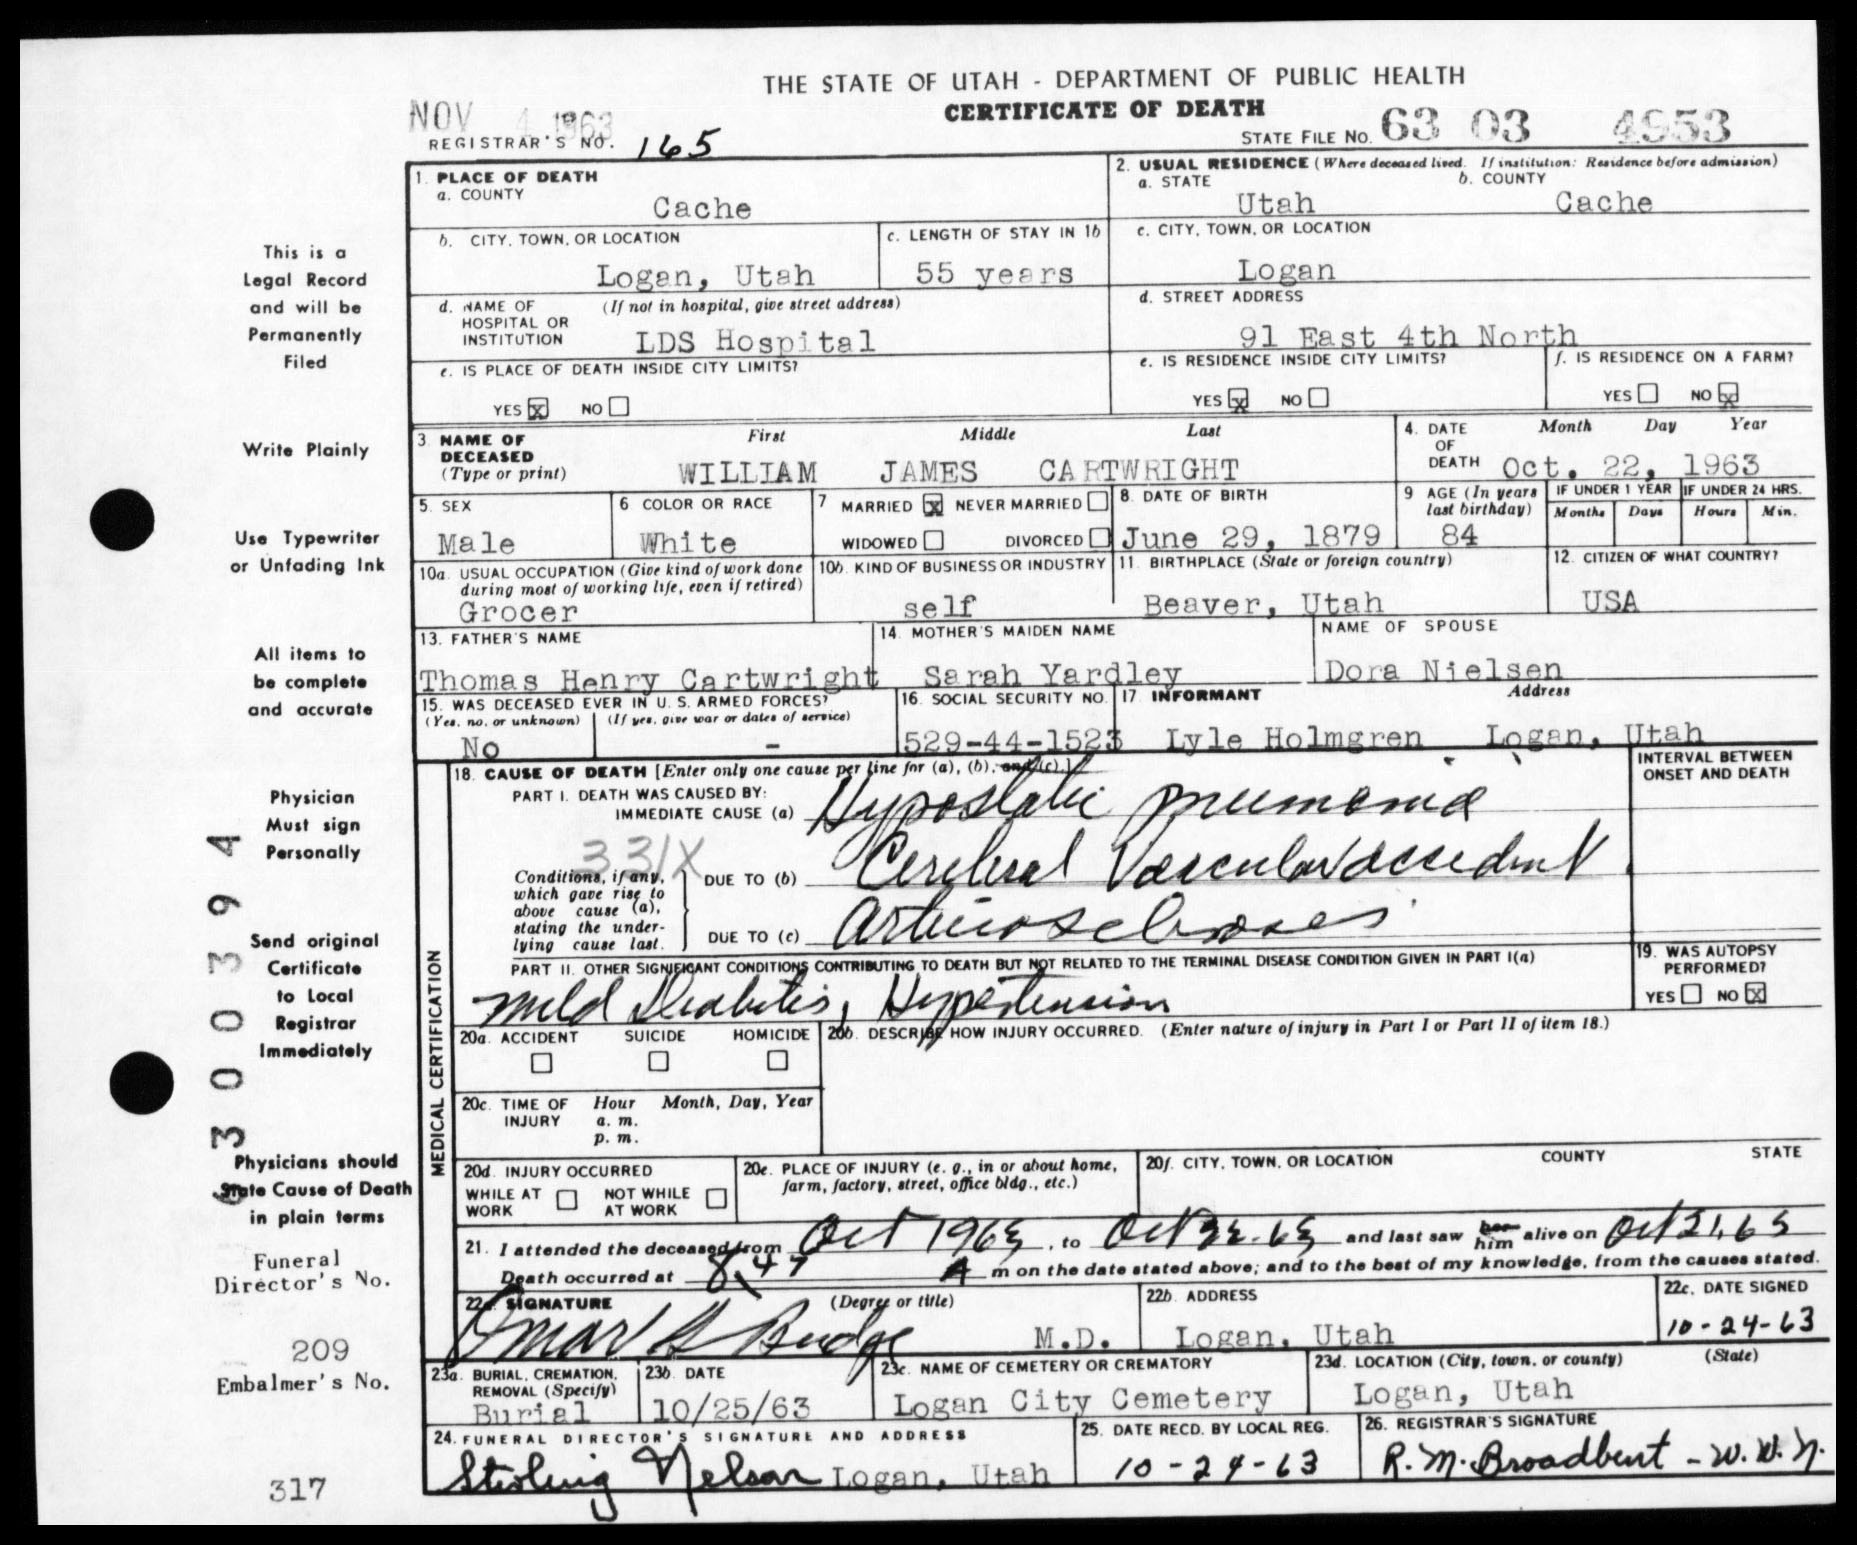 THE STATE OF UTAH - DEPARTMENT OF PUBLIC HEALTH
CERTIFICATE OF DEATH
NOV 4 1963
REGISTRAR'S NO. 165
STATE FILE NO. 63 03 4953
1. PLACE OF DEATH
a. COUNTY
Cache
2. USUAL RESIDENCE (Where deceased lived. If institution: Residence before admission)
a. STATE b. COUNTY
Utah Cache
b. CITY, TOWN, OR LOCATION
Logan, Utah
c. LENGTH OF STAY IN 1b
55 years
c. CITY, TOWN, OR LOCATION
Logan
d. NAME OF HOSPITAL OR INSTITUTION (If not in hospital, give street address)
LDS Hospital
d. STREET ADDRESS
91 East 4th North
e. IS PLACE OF DEATH INSIDE CITY LIMITS?
YES x NO
e. IS RESIDENCE INSIDE CITY LIMITS?
YES x NO
f. IS RESIDENCE ON A FARM?
YES NO x
3. NAME OF DECEASED (Type or print)
First Middle Last
WILLIAM JAMES CARTWRIGHT
4. DATE OF DEATH
Month Day Year
Oct. 22, 1963
5. SEX
Male
6 COLOR OR RACE
White
7 MARRIED x NEVER MARRIED
WIDOWED DIVORCED
8. DATE OF BIRTH
June 29, 1879
9 AGE (In years last birthday)
84
IF UNDER 1 YEAR
Months Days
IF UNDER 24 HRS.
Hours Min.
10a. USUAL OCCUPATION (Give kind of work done
during most of working life, even if retired)
Grocer
10b. KIND OF BUSINESS OR INDUSTRY
self
11. BIRTHPLACE (State or foreign country)
Beaver, Utah
12. CITIZEN OF WHAT COUNTRY?
USA
13. FATHER'S NAME
Thomas Henry Cartwright
14. MOTHER'S MAIDEN NAME
Sarah Yardley
NAME OF SPOUSE
Dora Nielsen
15. WAS DECEASED EVER IN U. S. ARMED FORCES?
(Yes, no, or unknown) (If yes, give war or dates of service)
No -
16. SOCIAL SECURITY NO.
529-44-1523
17. INFORMANT Address
Lyle Holmgren Logan, Utah
MEDICAL CERTIFICATION
18. CAUSE OF DEATH [Enter only one cause per line for (a), (b), and (c).]
INTERVAL BETWEEN
ONSET AND DEATH
PART I. DEATH WAS CAUSED BY:
IMMEDIATE CAUSE (a) Hypostatic pneumonia
331X
Conditions, if any,
which gave rise to
above cause (a),
stating the under-
lying cause last.
DUE TO (b) Cerebral Vascular accident
DUE TO (c) Arteriosclerosis
PART II. OTHER SIGNIFICANT CONDITIONS CONTRIBUTING TO DEATH BUT NOT RELATED TO THE TERMINAL DISEASE CONDITION GIVEN IN PART I(a)
mild Diabetis, Hypertension
19. WAS AUTOPSY
PERFORMED?
YES NO x
20a. ACCIDENT SUICIDE HOMICIDE
20b. DESCRIBE HOW INJURY OCCURRED. (Enter nature of injury in Part I or Part II of item 18.)
20c. TIME OF INJURY Hour Month, Day, Year
a. m.
p. m.
20d. INJURY OCCURRED
WHILE AT WORK NOT WHILE AT WORK
20e. PLACE OF INJURY (e. g., in or about home,
farm, factory, street, office bldg., etc.)
20f. CITY, TOWN, OR LOCATION COUNTY STATE
21. I attended the deceased from Oct 1963, to Oct 22-63 and last saw her him alive on Oct 21, 63
Death occurred at 8,47 A m on the date stated above; and to the best of my knowledge, from the causes stated.
22a. SIGNATURE (Degree or title)
Omar S Budge M.D.
22b. ADDRESS
Logan, Utah
22c. DATE SIGNED
10-24-63
23a. BURIAL, CREMATION,
REMOVAL (Specify)
Burial
23b. DATE
10/25/63
23c. NAME OF CEMETERY OR CREMATORY
Logan City Cemetery
23d. LOCATION (City, town, or county) (State)
Logan, Utah
24. FUNERAL DIRECTOR'S SIGNATURE AND ADDRESS
Sterling Nelson Logan, Utah
25. DATE RECD. BY LOCAL REG.
10-24-63
26. REGISTRAR'S SIGNATURE
R.M. Broadbent - W.W.N.
This is a
Legal Record
and will be
Permanently
Filed
Write Plainly
Use Typewriter
or Unfading Ink
All items to
be complete
and accurate
Physician
Must sign
Personally
Send original
Certificate
to Local
Registrar
Immediately
Physicians should
State Cause of Death
in plain terms
Funeral
Director's No.
209
Embalmer's No.
317
6300394